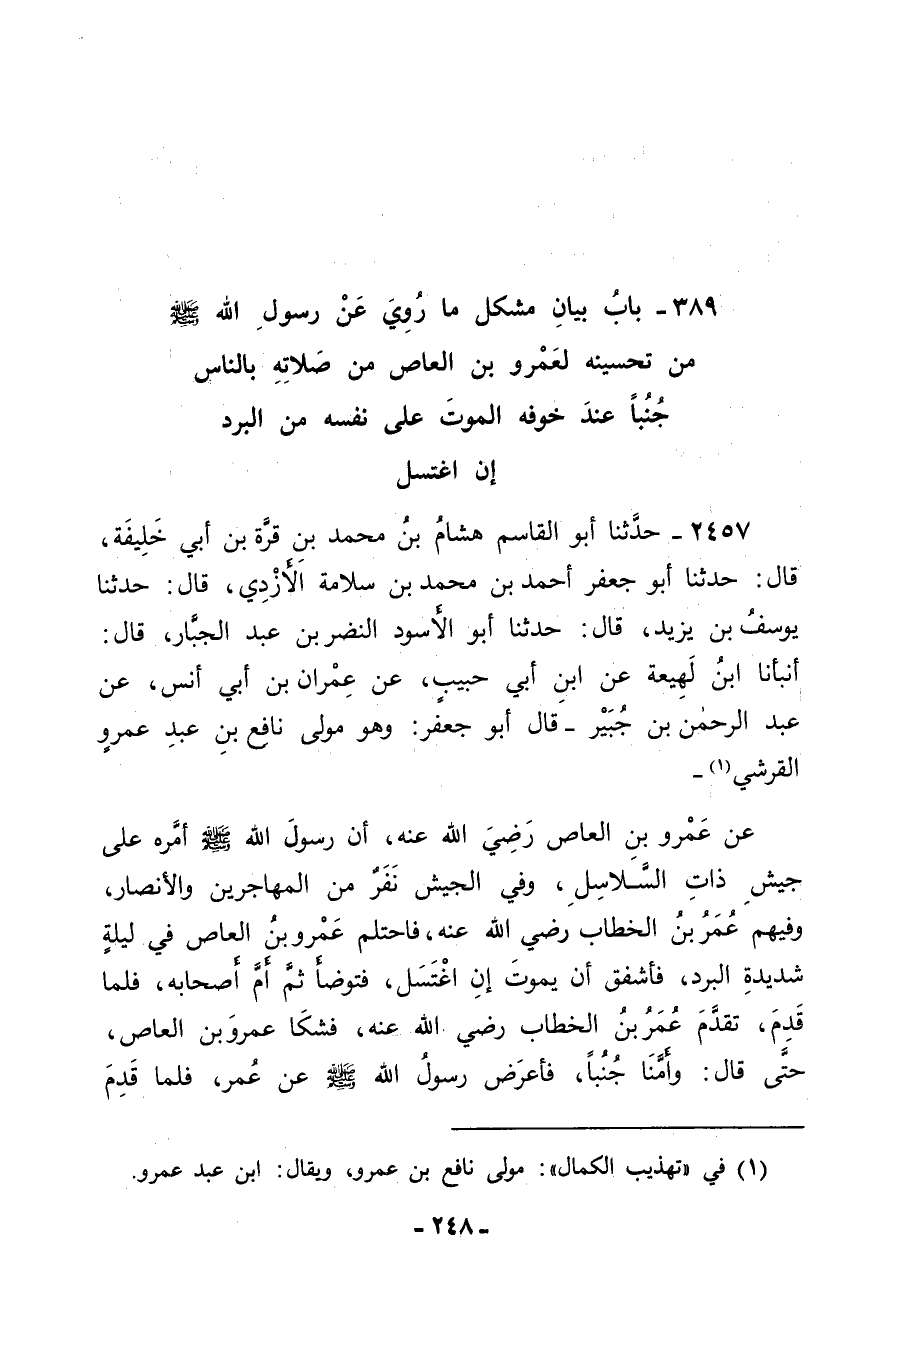 ٣٨٩ - بابُ بيانِ مشكل ما رُوِيَ عَنْ رسولِ الله ﷺ
من تحسينه لعَمْرو بن العاص من صَلاتِهِ بالناس
جُنُباً عندَ خوفه الموتَ على نفسه من البرد
إن اغتسل
٢٤٥٧ - حدَّثنا أبو القاسم هشامُ بنُ محمد بنِ قرَّة بن أبي خَلِيفَة،
قال: حدثنا أبو جعفر أحمد بن محمد بن سلامة الأَزْدِي، قال: حدثنا
يوسفُ بن يزيد، قال: حدثنا أبو الأَسود النضر بن عبد الجبَّار، قال:
أنبأنا ابنُ لَهِيعة عن ابنِ أبي حبيبٍ، عن عِمْران بن أبي أنس، عن
عبد الرحمٰن بن جُبَيْر - قال أبو جعفر: وهو مولى نافِع بنِ عبدِ عمروٍ
القرشي(١) -
عن عَمْرو بنِ العاص رَضِيَ الله عنه، أن رسولَ الله ﷺ أمَّره على
جيشِ ذاتِ السَّلاسِلِ، وفي الجيش نَفَرٌ من المهاجرين والأنصار،
وفيهم عُمَرُ بنُ الخطاب رضي الله عنه، فاحتلم عَمْرو بنُ العاص في ليلةٍ
شديدةِ البرد، فأشفق أن يموتَ إنِ اغْتَسَل، فتوضأَ ثمَّ أَمَّ أَصحابه، فلما
قَدِمَ، تقدَّمَ عُمَرُ بنُ الخطاب رضي الله عنه، فشكَا عمروَ بن العاص،
حتَّى قال: وأَمَّنَا جُنُباً، فأعرَض رسولُ الله ﷺ عن عُمر، فلما قَدِمَ
(١) في «تهذيب الكمال»: مولى نافع بن عمرو، ويقال: ابن عبد عمرو.
- ٢٤٨ -